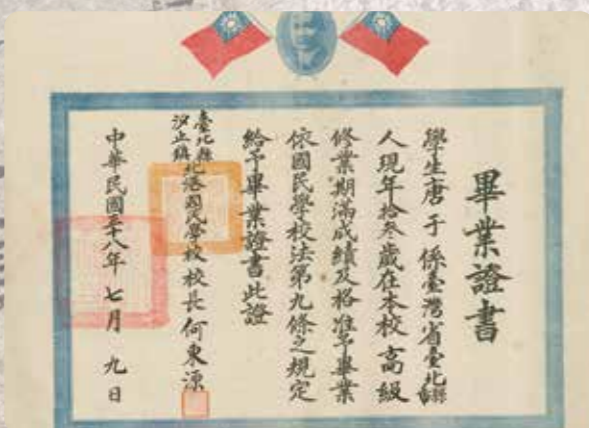 畢業證書
學生唐于係臺灣省臺北縣
人現年拾叁歲在本校高級
修業期滿成績及格准予畢業
依國民學校法第九條之規定
給予畢業證書此證
臺北縣汐止鎮北港國民學校校長何東源
中華民國三十八年七月九日